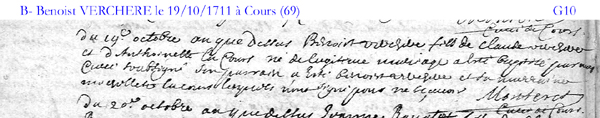 B- Benoist VERCHERE le 19/10/1711 à Cours (69) G10
Curé de Cours
du 19e octobre an que dessus Benoist verchere fils de claude verchere
et d'Anthoinette la Cours ne de legitime mariage a esté baptisé par moy
Curé soubsigné son parrain a esté benoist verchere et sa marraine
la cours lesquels n'ont signé pour ne sçavoir
du 20e octobre an que dessus
Curé de Cours